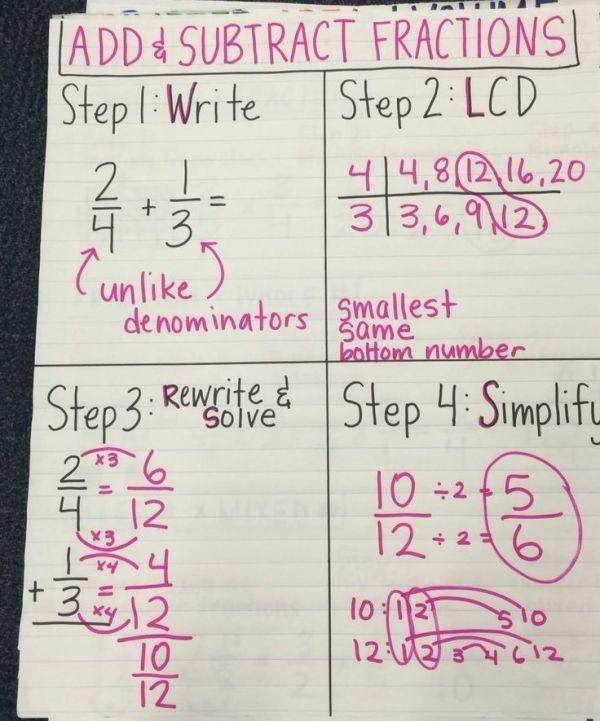 ADD & SUBTRACT FRACTIONS
Step 1: Write
2/4 + 1/3 =
unlike
denominators
Step 2: LCD
4 | 4, 8, 12, 16, 20
3 | 3, 6, 9, 12
smallest
same
bottom number
Step 3: Rewrite &
Solve
2/4 = 6/12
×3
×3
+ 1/3 = 4/12
×4
×4
10/12
Step 4: Simplify
10 ÷2 = 5
12 ÷ 2 = 6
10: 1 2 5 10
12: 1 2 3 4 6 12